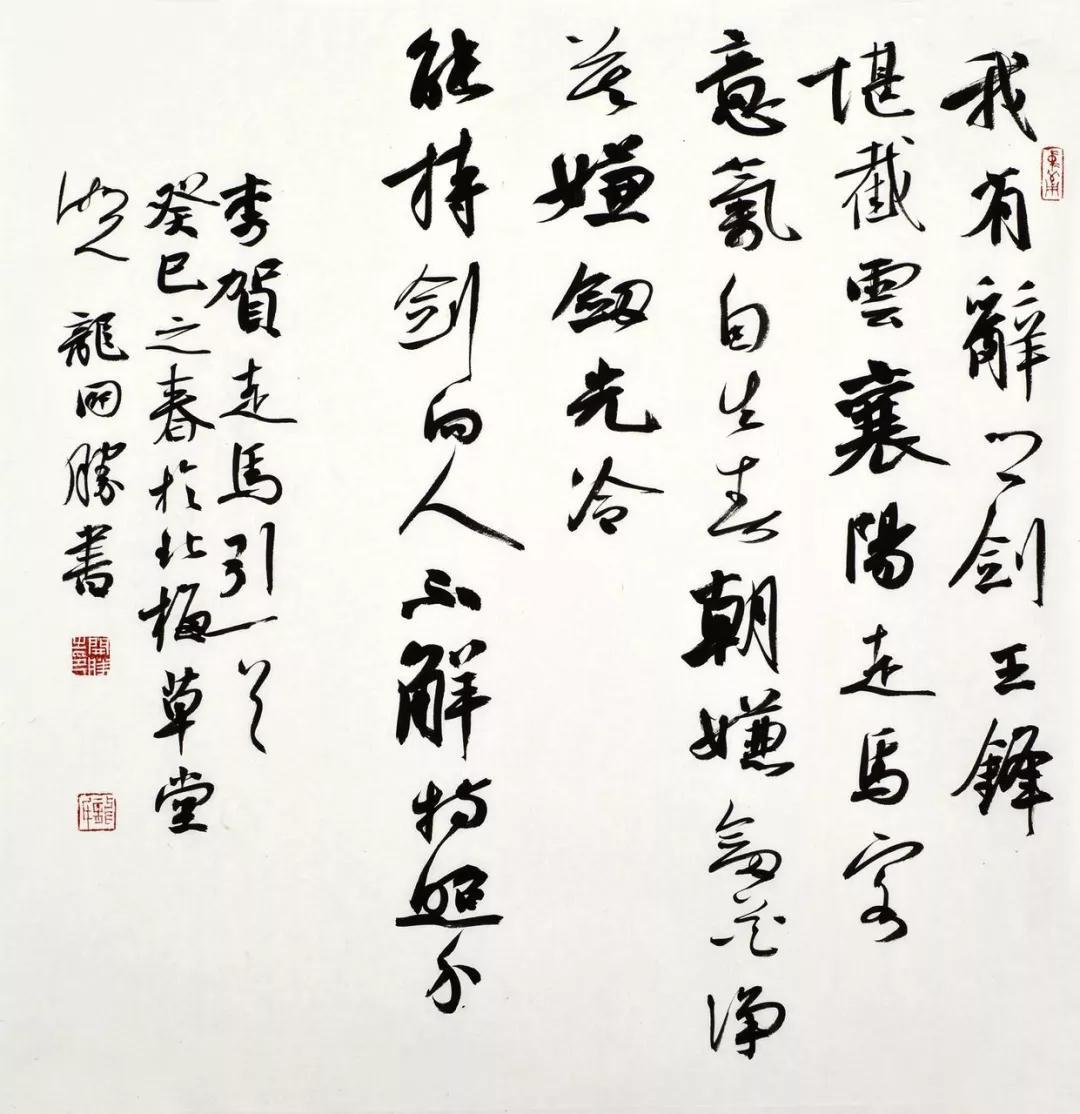 我有辭鄉劍玉鋒
堪截雲襄陽走馬客
意氣自生春朝嫌劍花淨
暮嫌劍光冷
能持劍向人不解持照身
李賀走馬引
癸巳之春於北梅草堂
湖人龍開勝書